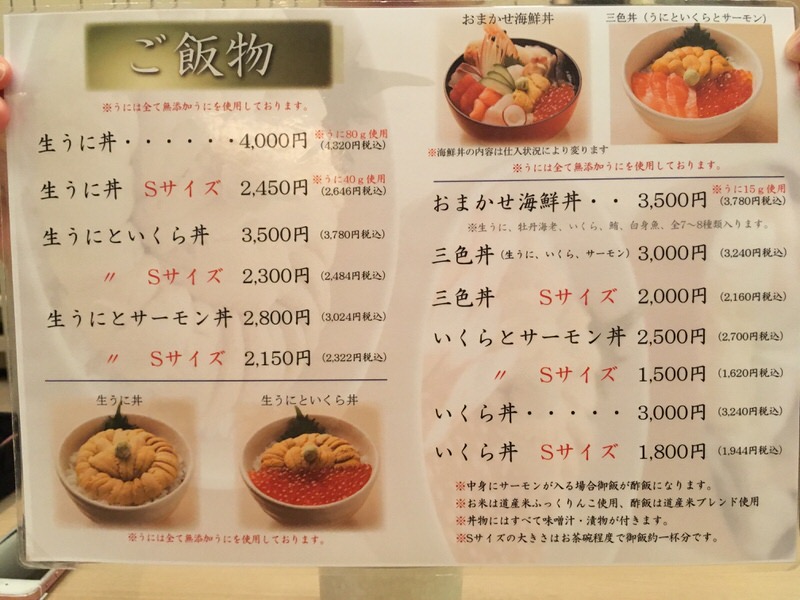 ご飯物
※うには全て無添加うにを使用しております。
生うに丼・・・・・・4,000円 ※うに80g使用 (4,320円税込)
生うに丼 Sサイズ 2,450円 ※うに40g使用 (2,646円税込)
生うにといくら丼 3,500円 (3,780円税込)
〃 Sサイズ 2,300円 (2,484円税込)
生うにとサーモン丼 2,800円 (3,024円税込)
〃 Sサイズ 2,150円 (2,322円税込)
生うに丼
生うにといくら丼
※うには全て無添加うにを使用しております。
おまかせ海鮮丼
三色丼(うにといくらとサーモン)
※海鮮丼の内容は仕入状況により変ります
※うには全て無添加うにを使用しております。
おまかせ海鮮丼・・ 3,500円 ※うに15g使用 (3,780円税込)
※生うに、牡丹海老、いくら、鮪、白身魚、全7~8種類入ります。
三色丼(生うに、いくら、サーモン) 3,000円 (3,240円税込)
三色丼 Sサイズ 2,000円 (2,160円税込)
いくらとサーモン丼 2,500円 (2,700円税込)
〃 Sサイズ 1,500円 (1,620円税込)
いくら丼・・・・・ 3,000円 (3,240円税込)
いくら丼 Sサイズ 1,800円 (1,944円税込)
※中身にサーモンが入る場合御飯が酢飯になります。
※お米は道産米ふっくりんこ使用、酢飯は道産米ブレンド使用
※丼物にはすべて味噌汁・漬物が付きます。
※Sサイズの大きさはお茶碗程度で御飯約一杯分です。